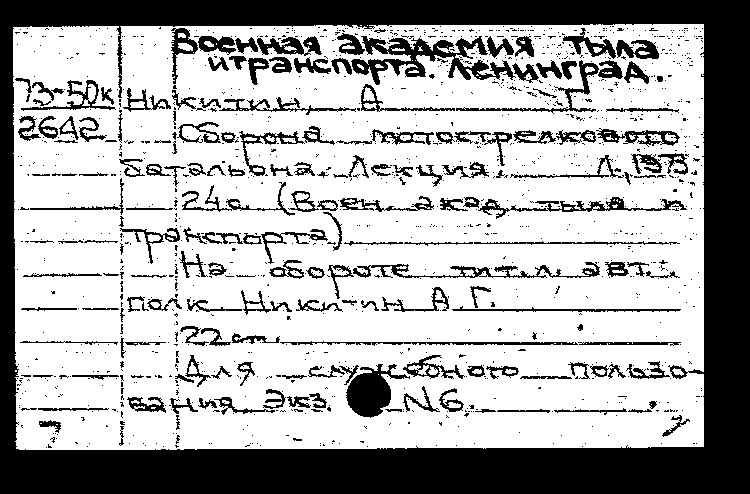 Военная академия тыла
и транспорта. Ленинград.
73-50к Никитин, А Г.
2642 Оборона мотострелкового
батальона. Лекция. Л., 1973.
24с. (Воен. акад. тыла и
транспорта).
На обороте тит. л. авт.:
полк Никитин А.Г.
22 см.
Для служебного пользо-
вания Экз. N6.
7